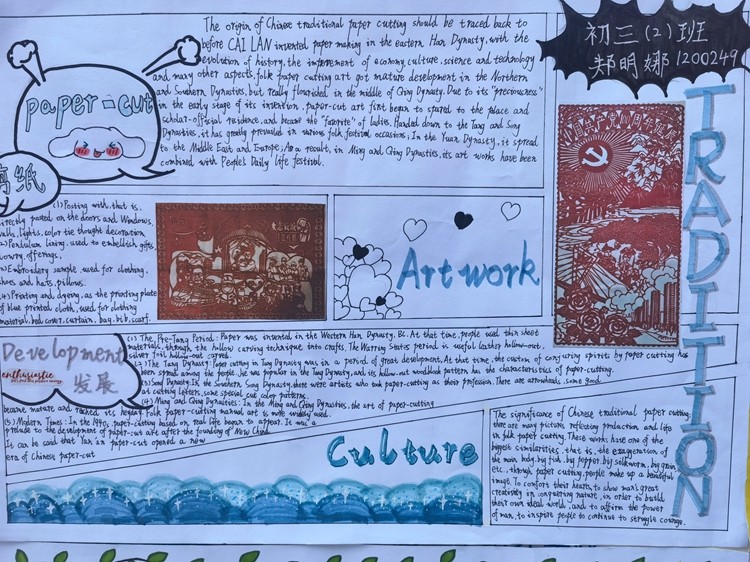 The origin of Chinese traditional paper cutting should be traced back to
before CAI LAN invented paper making in the eastern Han Dynasty, with the
evolution of history, the improvement of economy, culture, science and technology
and many other aspects, folk paper cutting art got mature development in the Northern
and Southern Dynasties, but really flourished in the middle of Qing Dynasty. Due to its "preciousness"
in the early stage of its invention, paper-cut art first began to spared to the palace and
scholar-official residence, and became the "favorite" of ladies. Handed down to the Tang and Song
Dynasties, it has greatly prevailed in various folk festival occasions; In the Yuan Dynasty, it spread
to the Middle East and Europe; As a result, in Ming and Qing Dynasties, its art works have been
combined with People's Daily life festival.
初三(2)班
郑明娜 1200249
paper-cut
剪纸
TRADITION
(1) Posting with, that is,
directly pasted on the doors and Windows,
walls, lights, color tie thought decoration
(2) Pendulum lining, used to embellish gifts,
dowry, offerings.
(3) Embroidery sample, used for clothing,
shoes and hats, pillows.
(4) Printing and dyeing, as the printing plate
of blue printed cloth, used for clothing
material, bed cover, curtain, bag, bib, scarf.
Art work
Development
enthusiastic
发展
(1) The Pre-Tang Period: Paper was invented in the Western Han Dynasty, BC. At that time, people used thin sheet
materials, through the hollow carving technique into crafts, The Warring States period is useful leather hollow-out,
silver foil hollow-out carved.
(2) The Tang Dynasty: Paper cutting in Tang Dynasty was in a period of great development. At that time, the custom of conjuring spirits by paper cutting has
been spread among the people, he was popular in the Tang Dynasty, and its hollow-out woodblock pattern has the characteristics of paper-cutting.
(3) Song Dynasty: In the Southern Song Dynasty, there were artists who took paper-cutting as their profession. There are arrowheads, some good
at cutting letters, some special cut color patterns.
(4) Ming and Qing Dynasties: In the Ming and Qing Dynasties, the art of paper-cutting
became mature and reached its heyday. Folk paper-cutting manual art is more widely used.
(5) Modern Times: In the 1940s, paper-cutting based on real life began to appear. It was a
prelude to the development of paper-cut art after the founding of New China
It can be said that Yan'an paper-cut opened a new
era of Chinese paper-cut
Culture
The significance of Chinese traditional paper cutting
there are many pictures reflecting production and life
in folk paper cutting. These works have one of the
biggest similarities, that is, the exaggeration of
the main body, big fish, big pepper, big silkworm, big grain,
etc., through paper cutting, people make up a beautiful
image. To comfort their hearts, to show man's great
creativity in conquering nature, in order to build
their own ideal world, and to affirm the power
of man, to inspire people to continue to struggle courage.